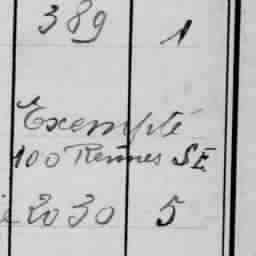 389 1
Exempté
100 Rennes SE
2030 5